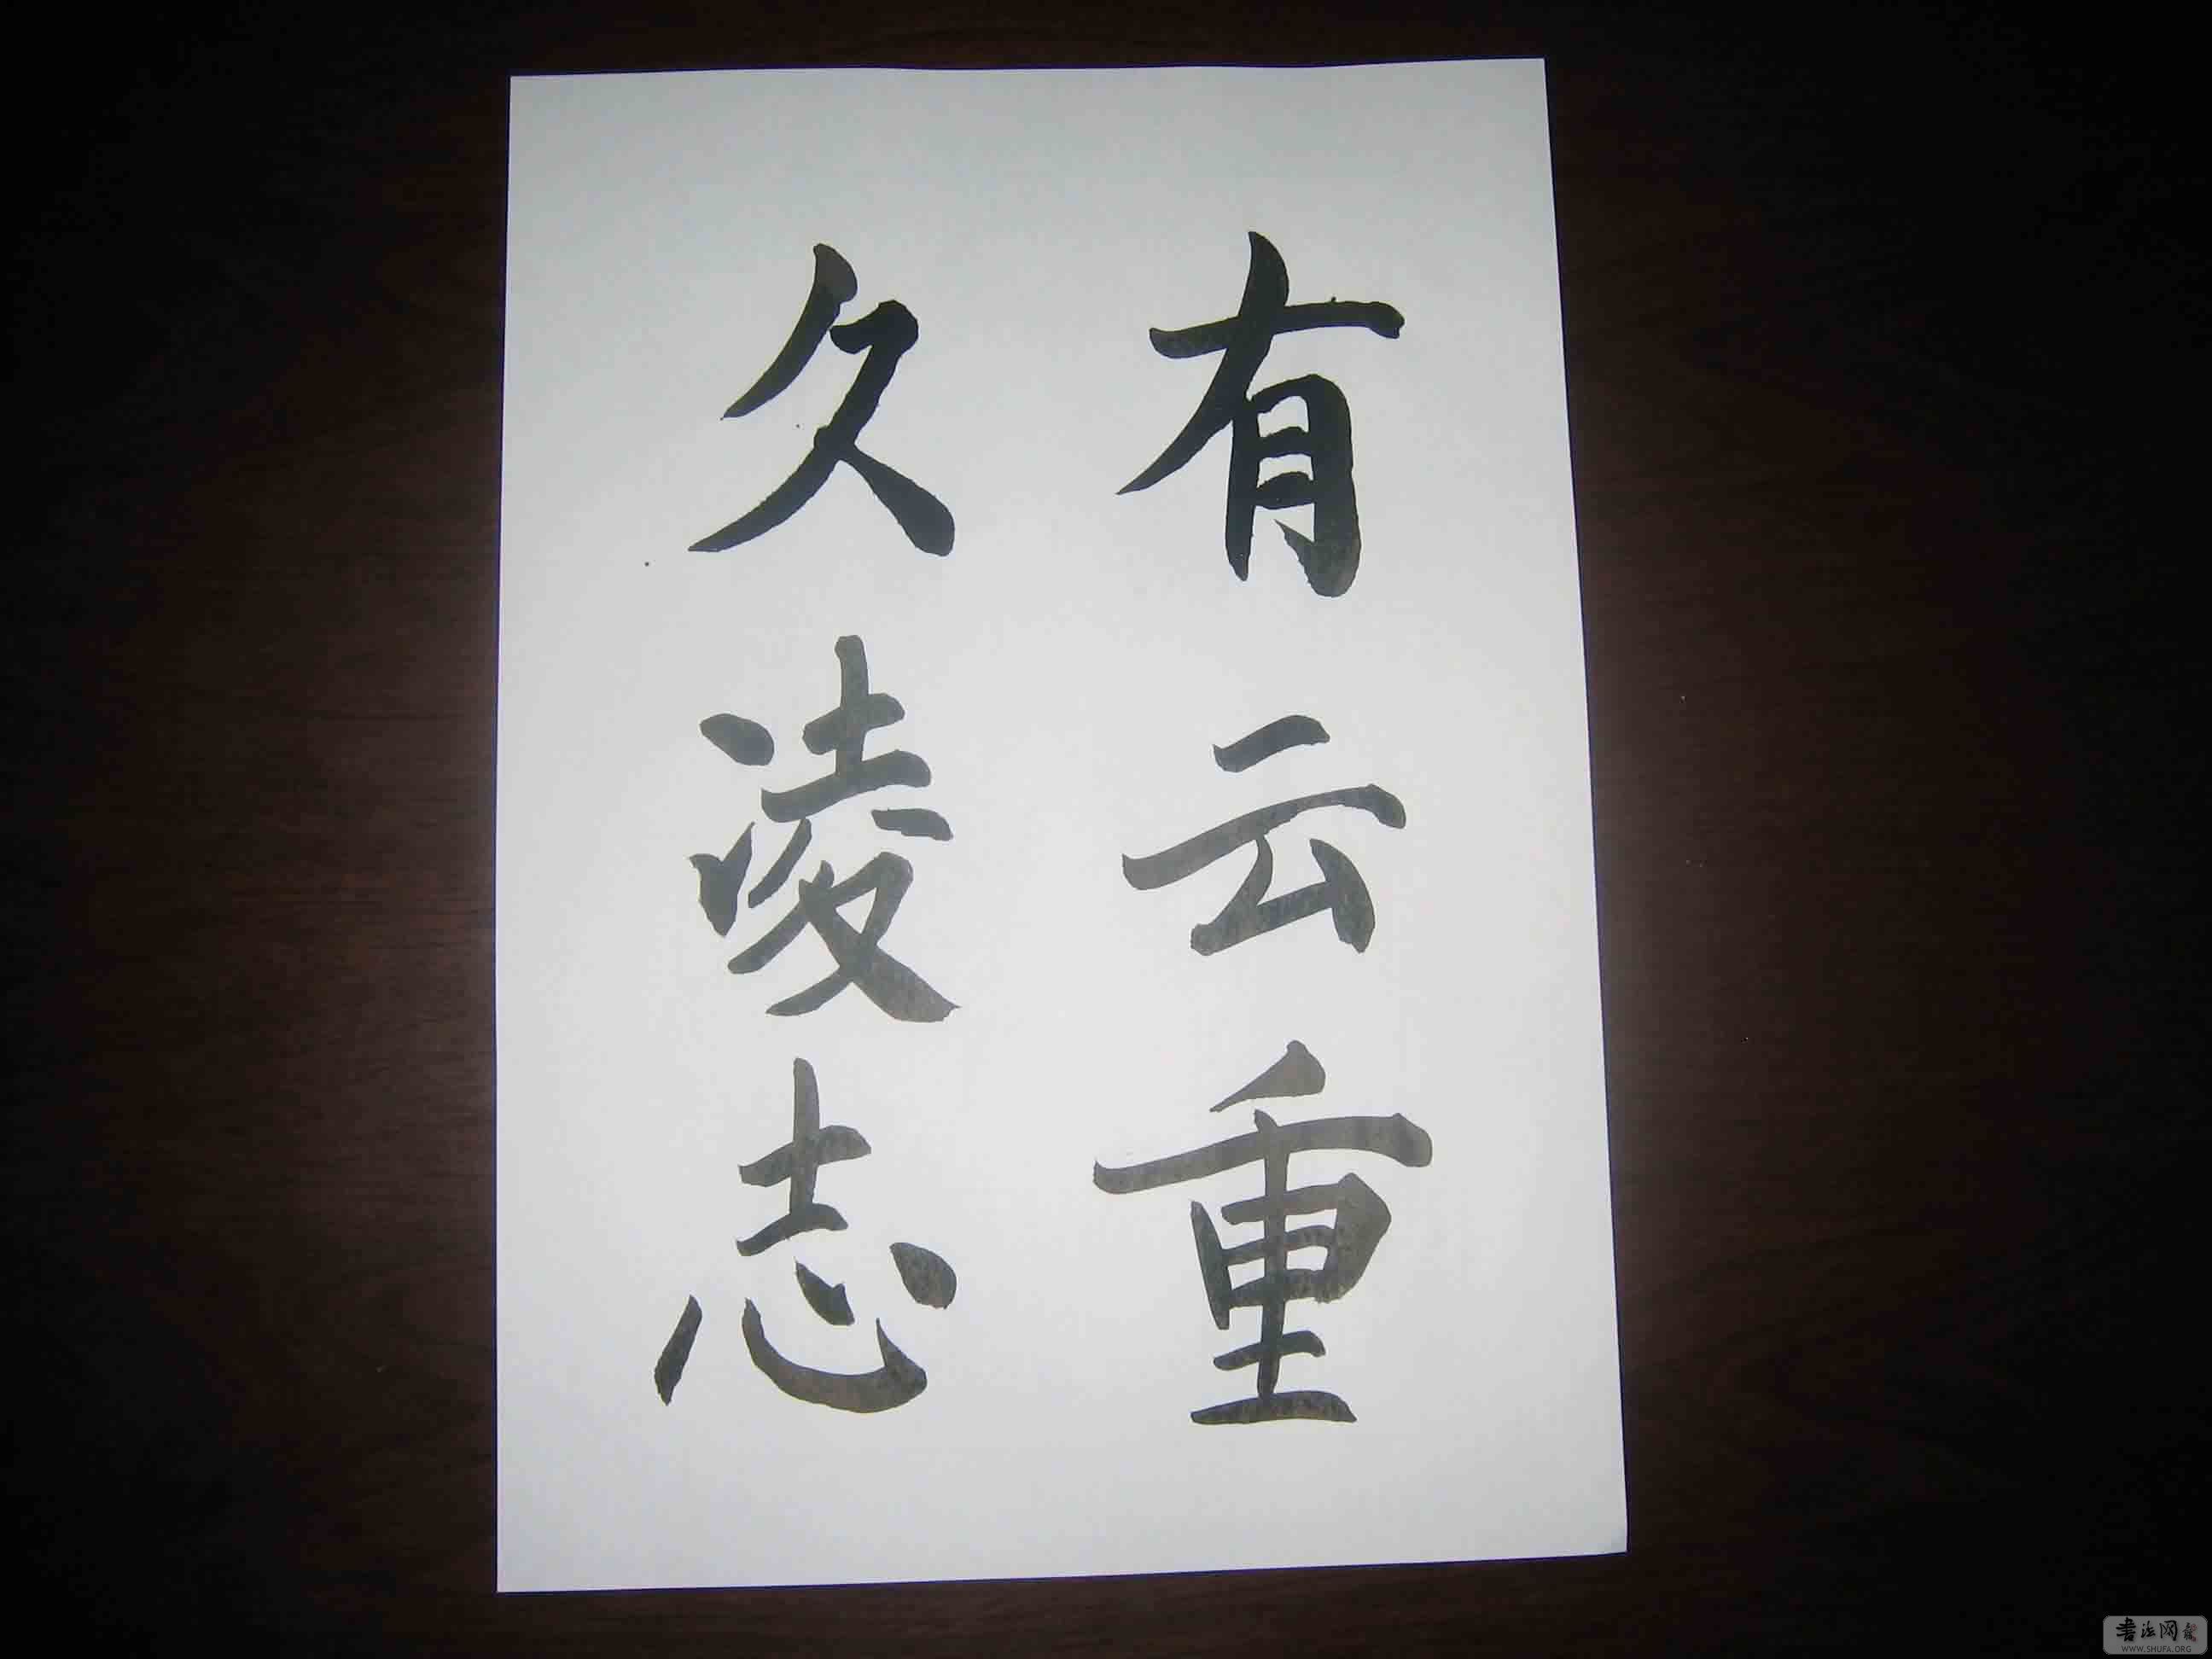 有云重
久凌志
书法网
WWW.SHUFA.ORG